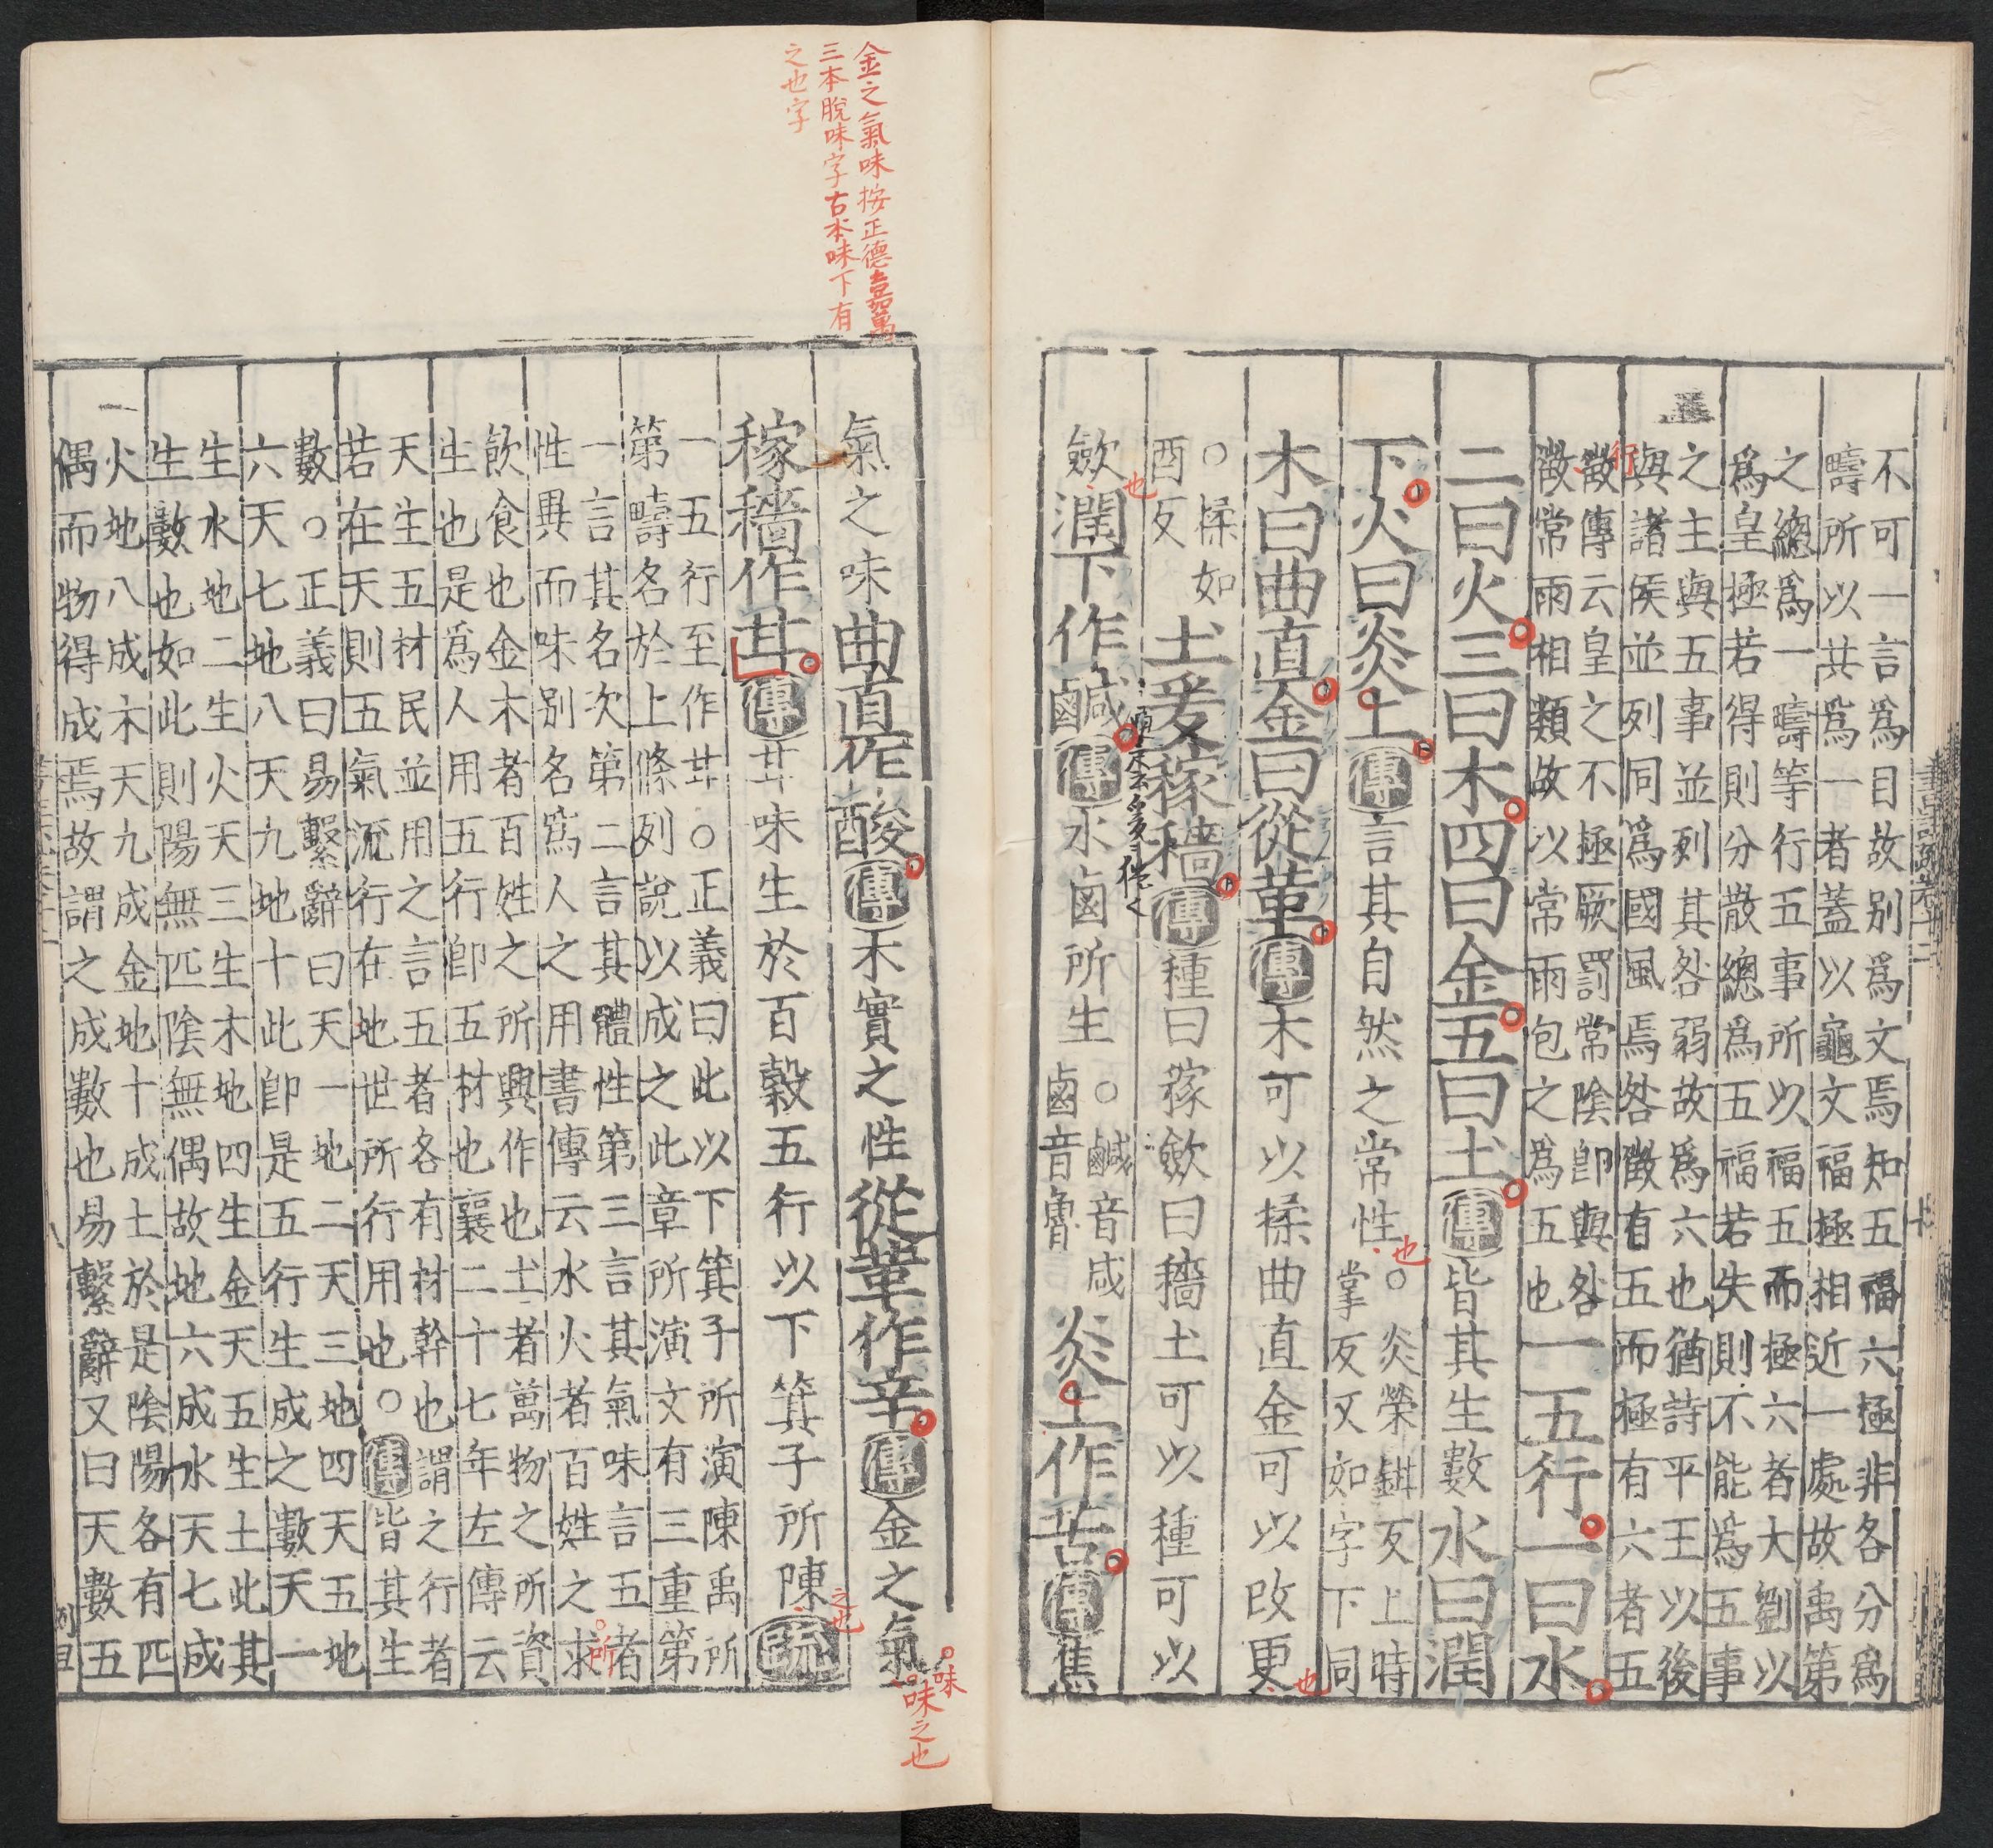 不可一言爲目故别爲文焉知五福六極非各分爲
疇所以共爲一者蓋以龜文福極相近一處故禹第
之總爲一疇等行五事所以福五而極六者大劉以
爲皇極若得則分散總爲五福若失則不能爲五事
之主與五事並列其咎弱故爲六也猶詩平王以後
與諸侯並列同爲國風焉咎徵有五而極有六者五
行
徵傳云皇之不極厥罰常陰即與咎
徵常雨相類故以常雨包之爲五也
一五行一曰水
二曰火三曰木四曰金五曰土傳皆其生數水曰潤
下火曰炎上傳言其自然之常性
也
○炎榮鉗反上時
掌反又如字下同
木曰曲直金曰從革傳木可以揉曲直金可以改更
也
○揉如
酉反
土爰稼穡傳種曰稼歛曰穡土可以種可以
歛潤下作鹹傳水鹵所生
也
○鹹音咸
鹵音魯
炎上作苦傳焦
金之氣味按正德嘉萬
三本脫味字古本味下有
之也字
氣之味曲直作酸傳木實之性從革作辛傳金之氣
味
味之也
稼穡作甘傳甘味生於百穀五行以下箕子所陳疏
之也
一五行至作甘○正義曰此以下箕子所演陳禹所
第疇名於上條列說以成之此章所演文有三重第
一言其名次第二言其體性第三言其氣味言五者
性異而味别名爲人之用書傳云水火者百姓之求
所
飲食也金木者百姓之所興作也土者萬物之所資
生也是爲人用五行即五材也襄二十七年左傳云
天生五材民並用之言五者各有材幹也謂之行者
若在天則五氣流行在地世所行用也○傳皆其生
數○正義曰易繫辭曰天一地二天三地四天五地
六天七地八天九地十此即是五行生成之數天一
生水地二生火天三生木地四生金天五生土此其
生數也如此則陽無匹陰無偶故地六成水天七成
火地八成木天九成金地十成土於是陰陽各有匹
偶而物得成焉故謂之成數也易繫辭又曰天數五